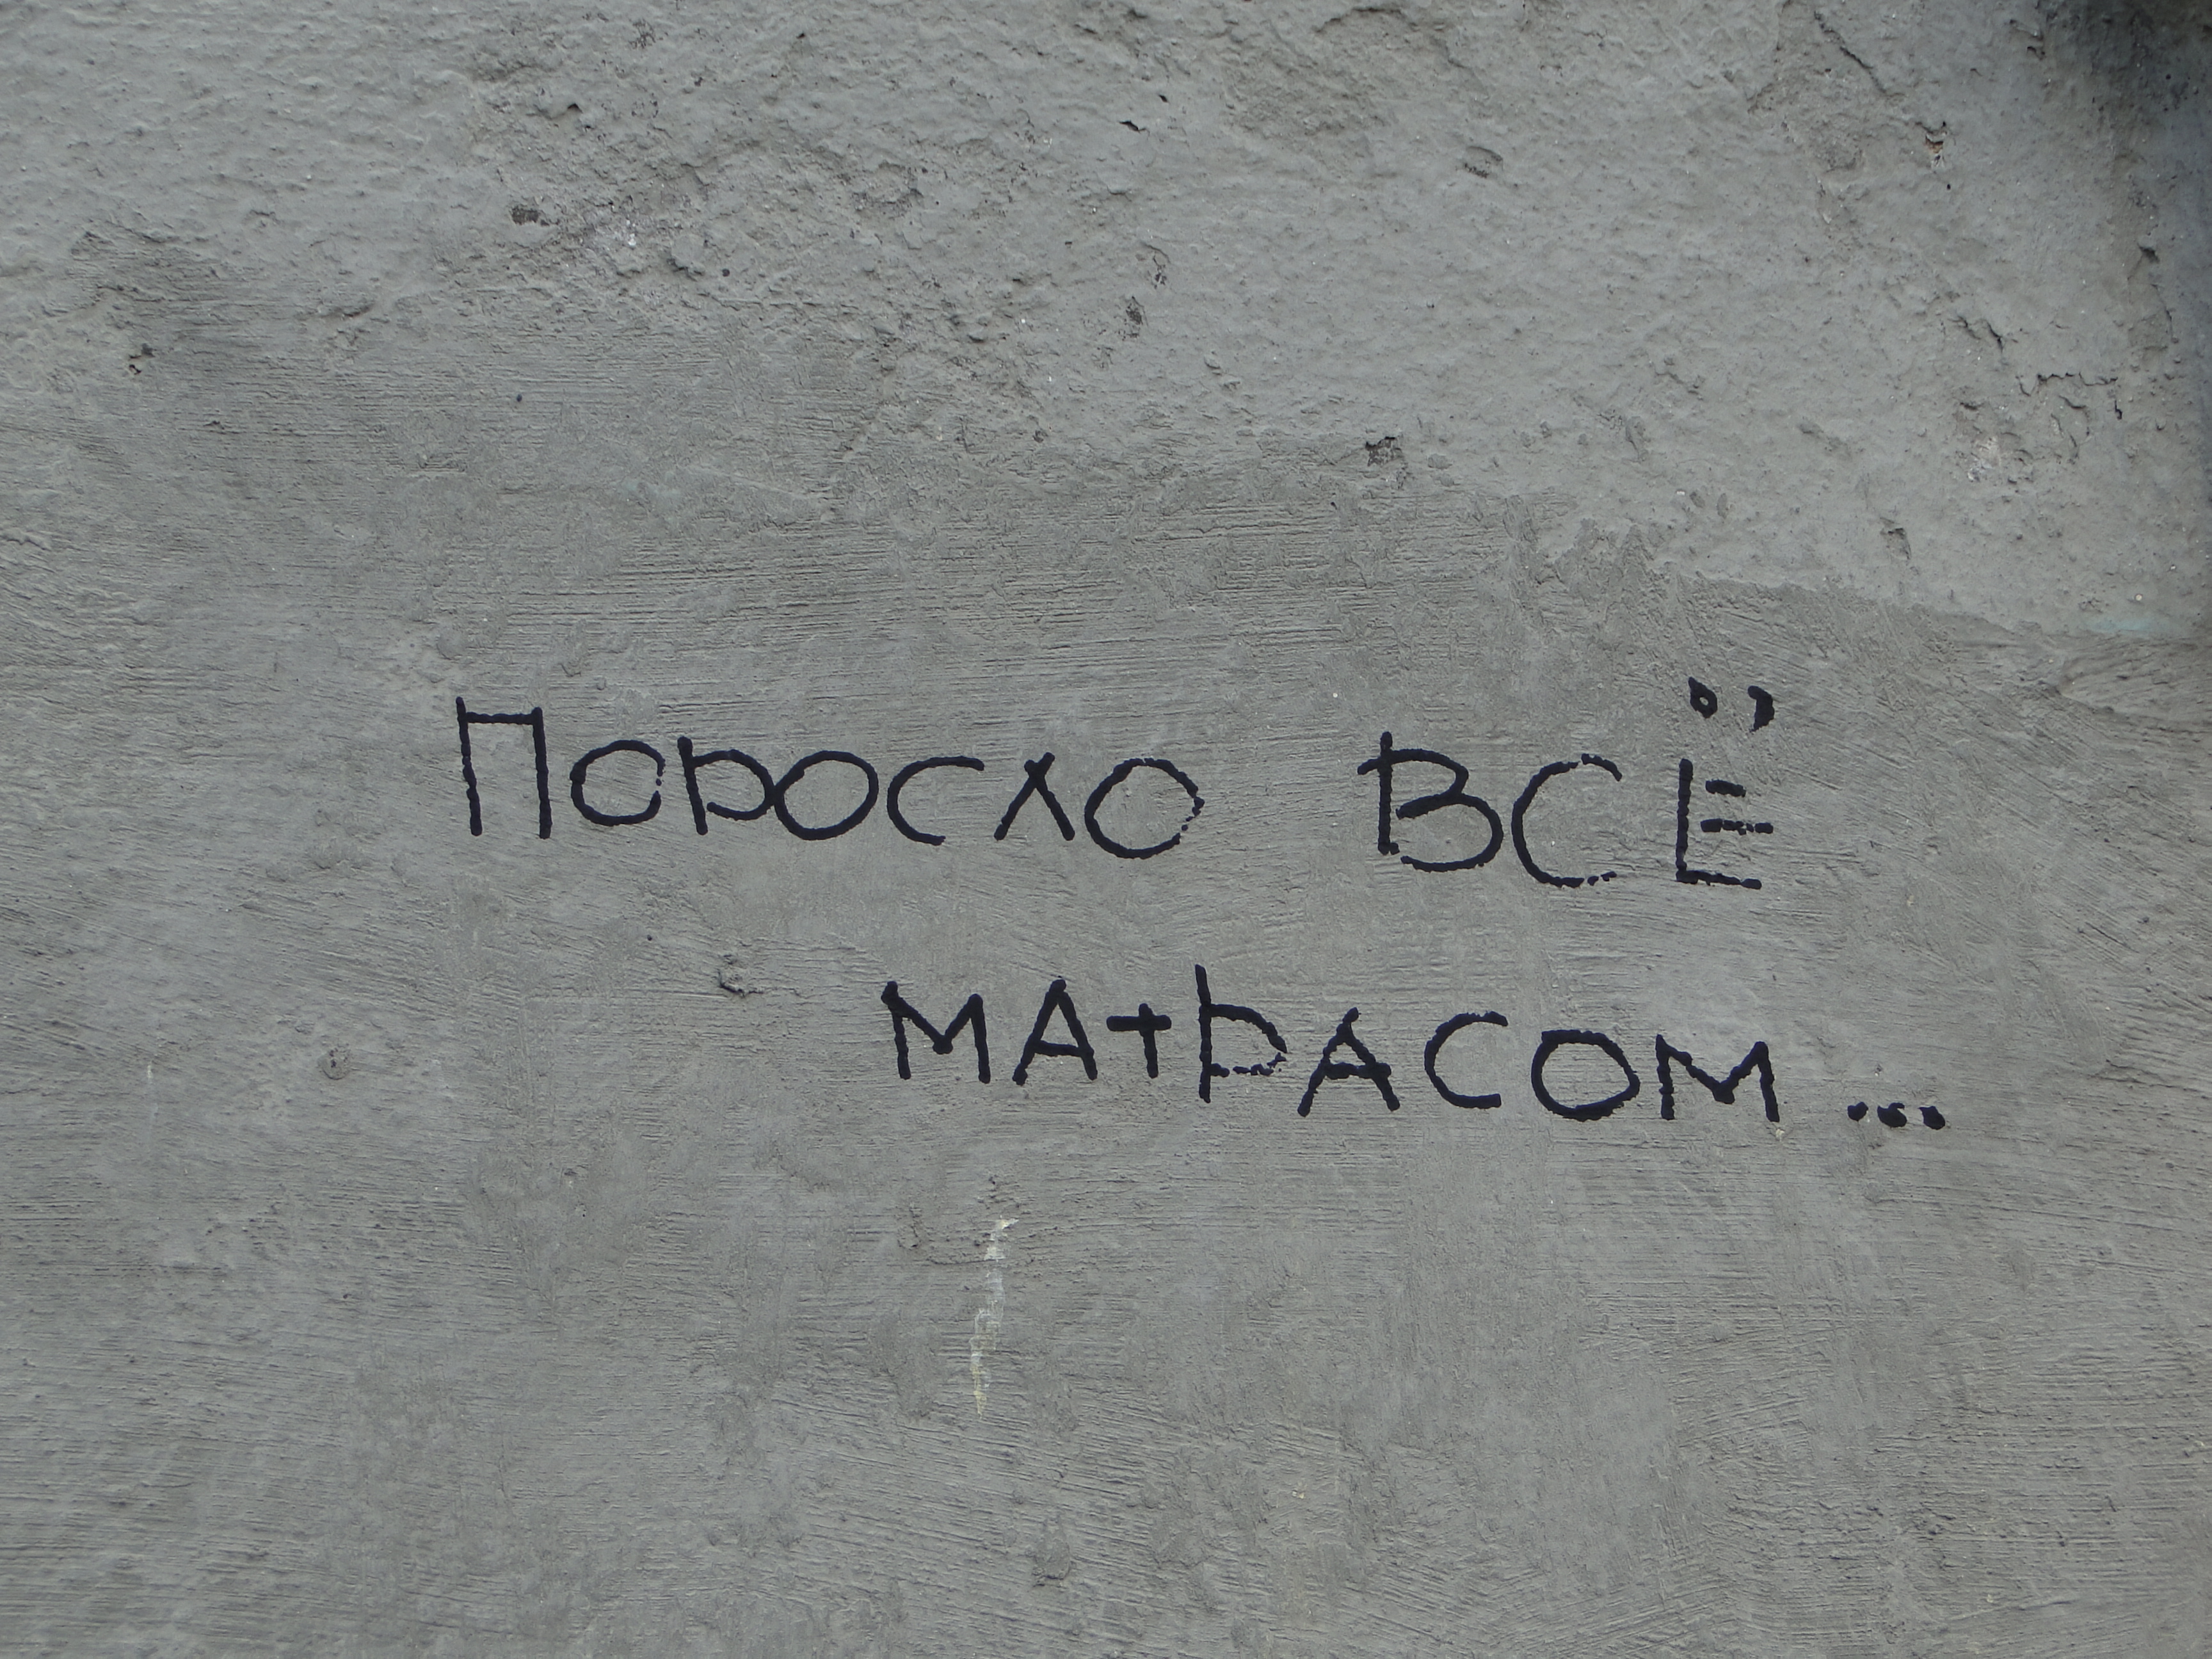 Поросло ВСЁ
МАТРАСОМ...